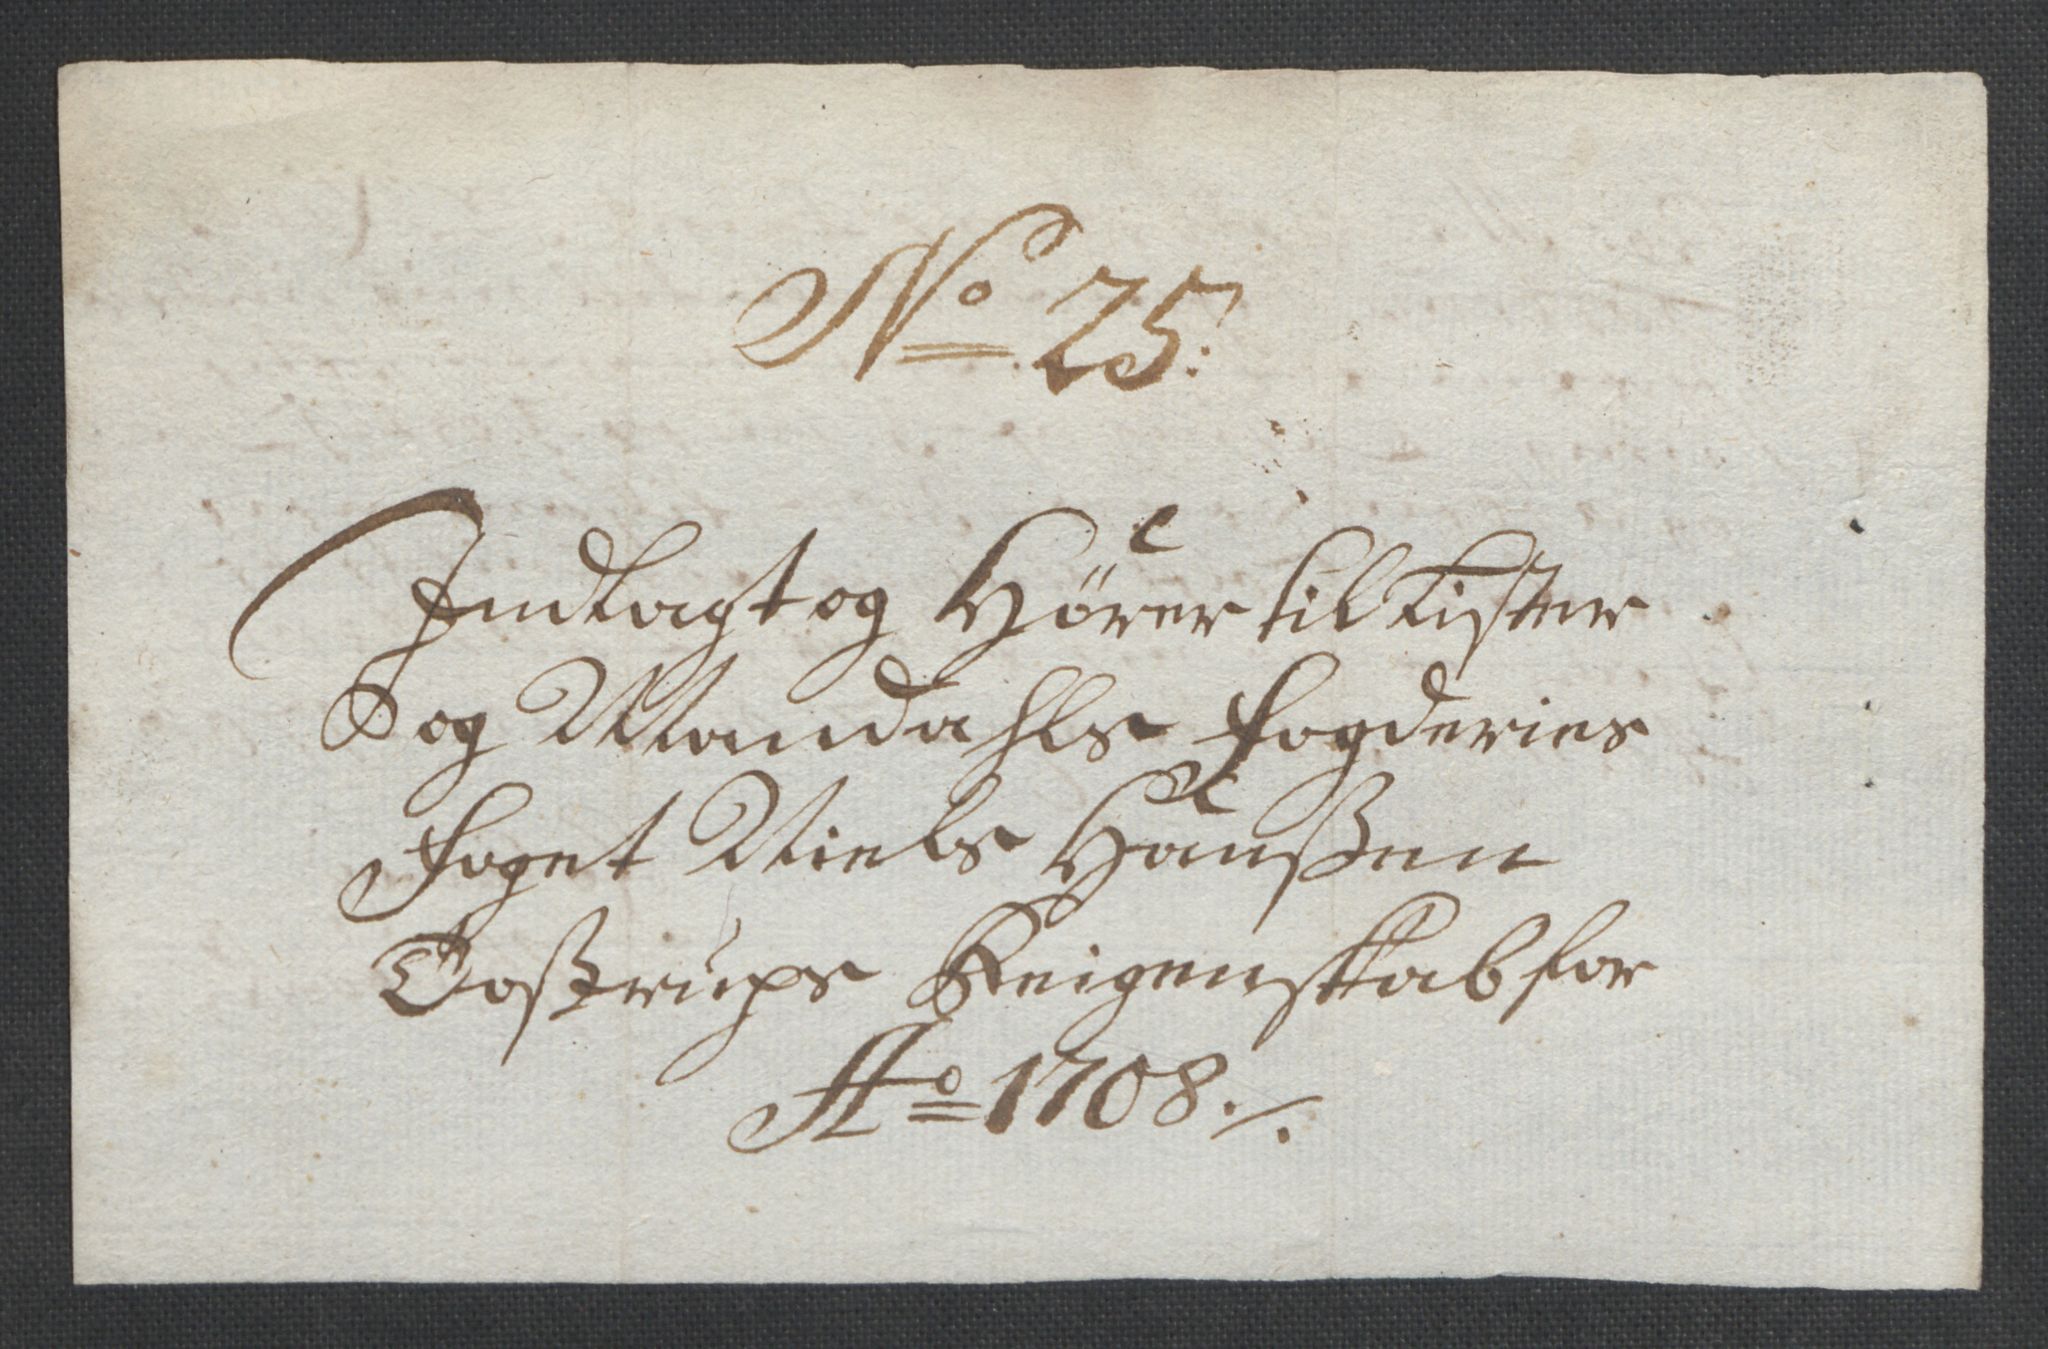 No 25:
Indlagt og Hörer til Lister
og Mandahls fogderies
foget Niels Hanßen
Toßtrups Reigenskab for
Ao 1708 ./.